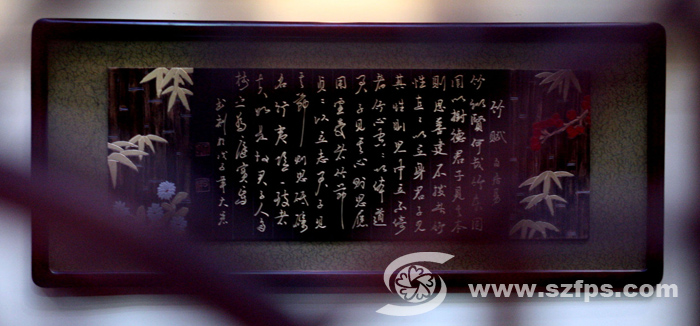 竹賦 白居易
竹似賢何哉竹本固
固以樹德君子見其本
則思善建不拔者竹
性直〻以立身君子見
其性則思中立不倚
者竹心空〻以體道
君子見其心則思應
用虛受者竹節
貞〻以立志君子見
其節則思砥礪
名行夷險一致者
夫如是故君子人多
樹之為庭實焉
戊子年
www.szfps.com